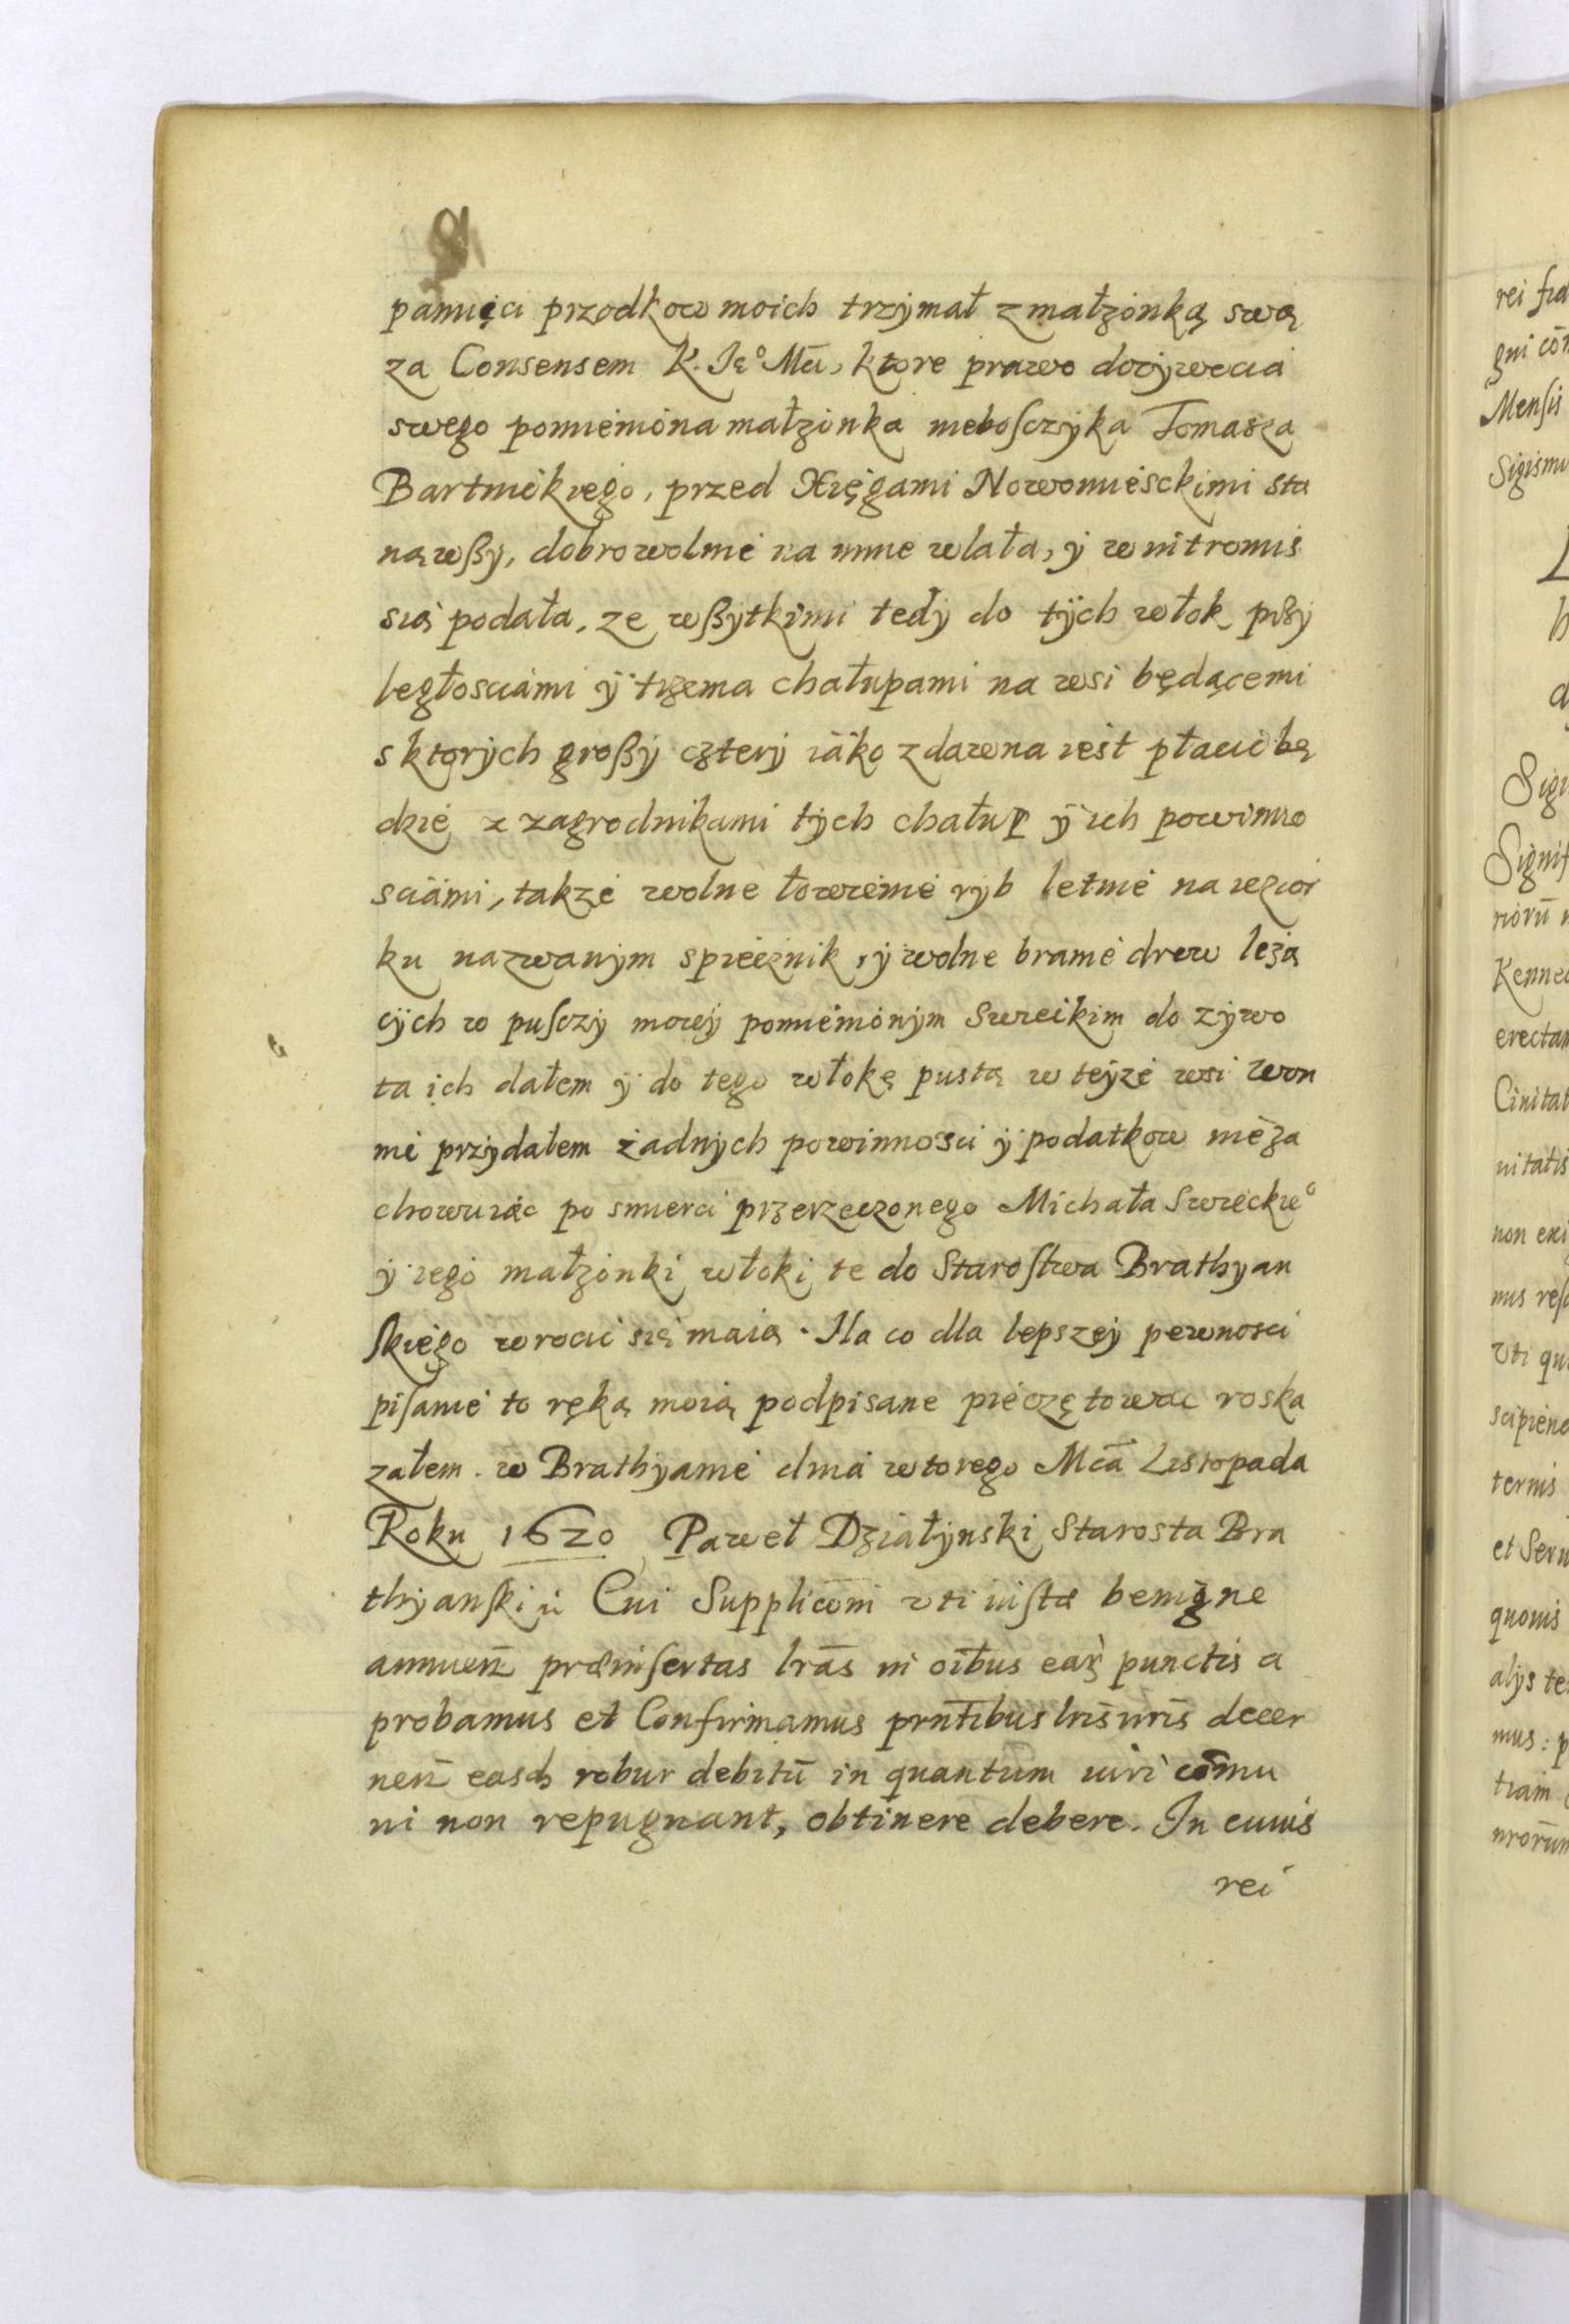 pamięci przodkow moich trzymał z małżonką swą
za Consensem K. Ie° Mci, ktore prawo dożywocia
swego pomienióna małżonka nieboſczyka Tomasza
Bartnickiego, przed Xięgami Nowomiesckimi sta
nąwßy, dobrowolnie na mnie wlała, ÿ w intromis
sią podała, ze wßytkimi tedÿ do tÿch włok przÿ
ległosciami ÿ trzema chałupami na wsi będącemi
s ktorÿch großÿ czterÿ iáko z dawna iest płacic bę
dzie z zagrodnikami tÿch chałup ÿ ich powinno
sciámi, takze wolne łowienie rÿb letnie na iezior
ku nazwanÿm spieznik, ÿ wolne branie drew leżą
cÿch w puſczÿ moieÿ pomieniónÿm Swieckim do zÿwo
ta ich dałem ÿ do tego włokę pustą w teÿze wsi Won
nie przÿdałem żadnÿch powinnosci ÿ podatkow nieza
chowuiąc po smierci przerzeczonego Michała Swieckie°
ÿ iego małżonki włoki te do Staroſtwa Brathyan
ſkiego wrocic się maią. Na co dla lepszeÿ pewnosci
piſanie to ręką moią podpisane pieczętowac roska
załem. w Brathyanie dnia wtorego Mcā Listopada
Roku 1620 Paweł Działÿnski Starosta Bra
thyanſki
Cui Supplicōni vti iuſtæ benigne
annuen præinſertas lrās in oībus earū punctis a
probamus et Confirmamus prntibus lris nrīs decer
nen easdē robur debitū in quantum iuri cōmu
ni non repugnant, obtinere debere. In cuius
rei
rei
Mensis
Kenned
erectam
non exi
vti qu
ternis
quouis
mus: p